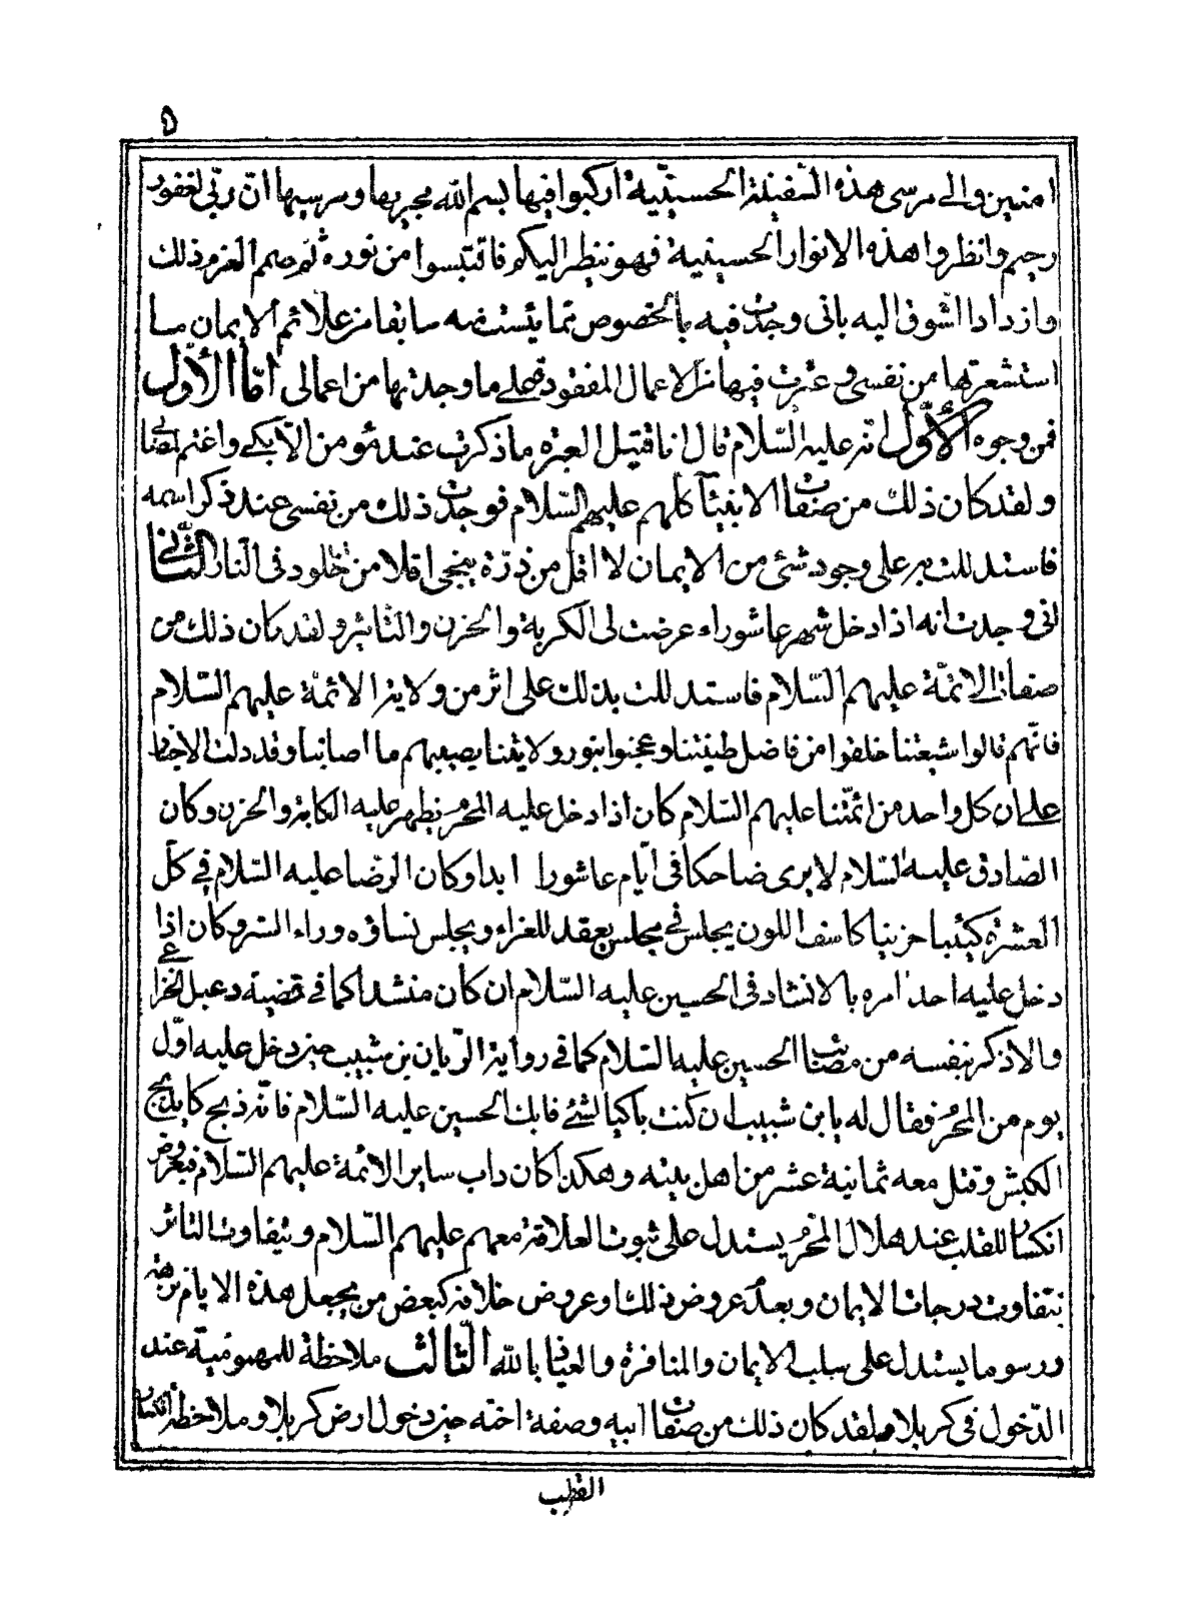 ۵
امنين والى مرسى هذه السّفينة الحسينيّة اركبوا فيها بسم اللّه مجريها ومرسيها انّ ربّى لغفور
رحيم وانظروا هذه الانوار الحسينية فهو ينظر اليكم فاقتبسوا من نوره ثم صمم العزم ذلك
وازداد الشّوق اليه بانى وجدت فيه بالخصوص ممّا يئست منه سابقا من علائم الايمان ما
استشعرتها من نفسى وعثرت فيها من الاعمال المفقودة على ما وجدتها من اعمالى امّا الأوّل
فمن وجوه الأوّل انه عليه السّلام قال انا قتيل العبرة ما ذكرت عند مؤمن الّا بكى واغتم لمصابى
ولقد كان ذلك من صفات الانبيآء كلهم عليهم السّلام فوجدت ذلك من نفسى عند ذكر اسمه
فاستدللت به على وجود شئ من الايمان لا اقل من ذرّة ينجى اقلا من خلود فى النار الثّانى
انى وجدت انه اذا دخل شهر عاشوراء عرضت لى الكربة والحزن والتاثير ولقد كان ذلك من
صفات الائمّة عليهم السّلام فاستدللت بذلك على اثر من ولاية الائمّة عليهم السّلام
فانّهم قالوا شيعتنا خلقوا من فاضل طينتنا وعجنوا بنور ولايتنا يصيبهم ما اصابنا وقد دلت الاخبار
على ان كل واحد من ائمّتنا عليهم السّلام كان اذا دخل عليه المحرم يظهر عليه الكابة والحزن وكان
الصّادق عليه السّلام لا يرى ضاحكا فى ايّام عاشورا ابدا وكان الرضا عليه السّلام فى كلّ
العشرة كئيبا حزينا كاسف اللون يجلس فى مجلس يعقد للعزاء ويجلس نساؤه وراء الستر وكان اذا
دخل عليه احد امره بالانشاد فى الحسين عليه السّلام ان كان منشدا كما فى قضية دعبل الخزاعى
والا ذكر بنفسه من مصائب الحسين عليه السّلام كما فى رواية الرّيان بن شبيب حين دخل عليه اوّل
يوم من المحرّم فقال له يابن شبيب ان كنت باكيا لشئ فابك الحسين عليه السّلام فانّه ذبح كما يذبح
الكبش وقتل معه ثمانية عشر من اهل بيته وهكذا كان داب ساير الائمّة عليهم السّلام فبعروض
انكسار القلب عند هلال المحرّم يستدل على ثبوت العلاقة معهم عليهم السّلام ويتفاوت التاثر
بتفاوت درجات الايمان وبعدم عروض ذلك او عروض خلافه كبعض من يجعل هذه الايام نزهة
ورسوما يستدل على سلب الايمان والمنافرة والعياذ باللّه الثّالث ملاحظة للمهمومية عند
الدّخول فى كربلا ولقد كان ذلك من صفات ابيه وصفة اخته حين دخول ارض كربلا وملاحظة انكسار
القلب